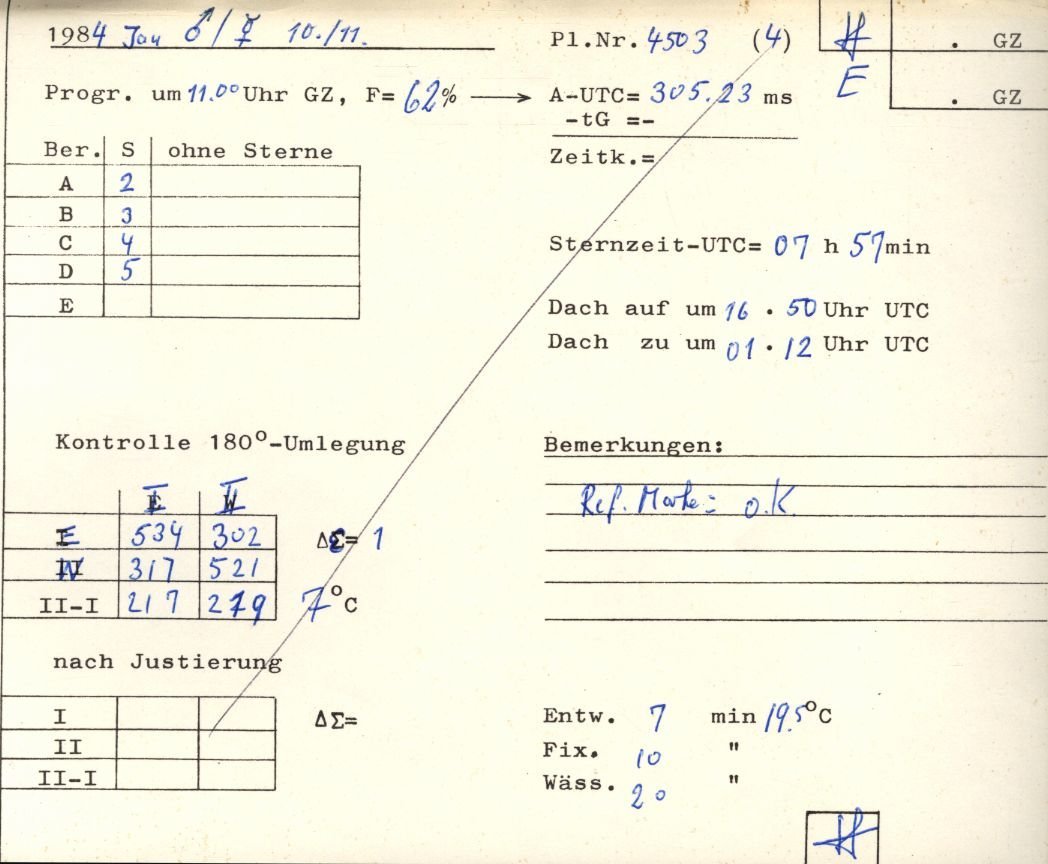 1984 Jan ♂/☿ 10./11.
Pl.Nr. 4503 (4)
. GZ
Progr. um 11.00 Uhr GZ, F= 62% → A-UTC= 305.23 ms
E
. GZ
-tG =-
Zeitk.=
Ber. S ohne Sterne
A 2
B 3
C 4
D 5
E
Sternzeit-UTC= 07 h 57min
Dach auf um 16 . 50 Uhr UTC
Dach zu um 01 . 12 Uhr UTC
Kontrolle 180°-Umlegung
I II
E 534 302 ΔΣ= 1
W 317 521
II-I 217 219 7°C
nach Justierung
I ΔΣ=
II
II-I
Bemerkungen:
Ref. Marke: o.K.
Entw. 7 min 19.5°C
Fix. 10 "
Wäss. 20 "